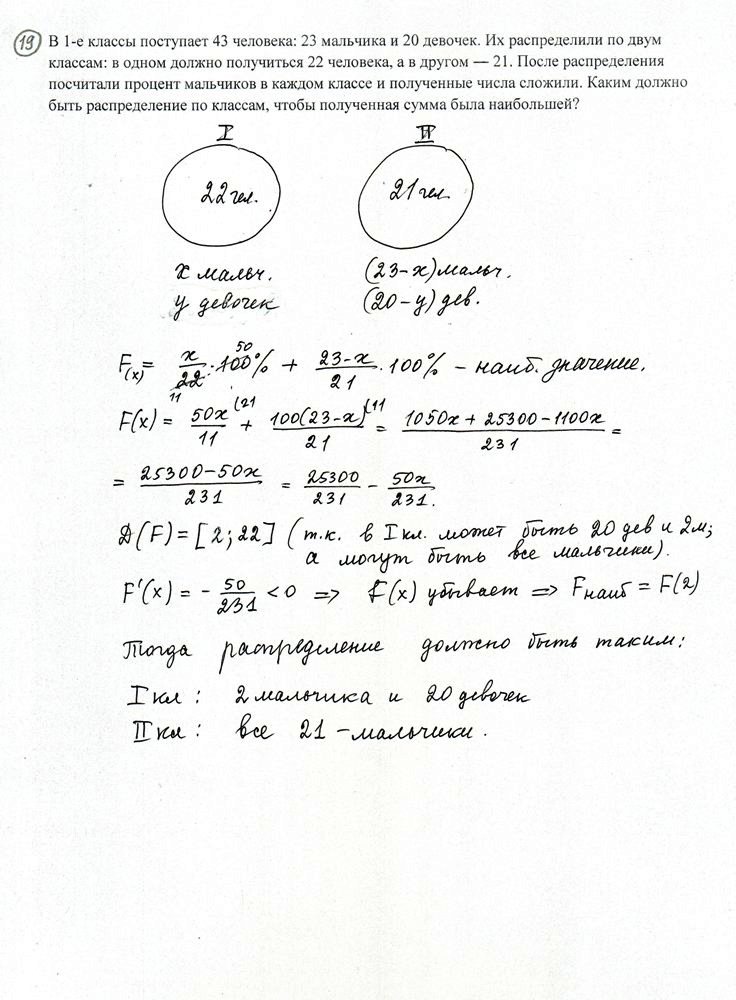 19 В 1-е классы поступает 43 человека: 23 мальчика и 20 девочек. Их распределили по двум
классам: в одном должно получиться 22 человека, а в другом — 21. После распределения
посчитали процент мальчиков в каждом классе и полученные числа сложили. Каким должно
быть распределение по классам, чтобы полученная сумма была наибольшей?
I II
22 чел. 21 чел
x мальч. (23-x) мальч.
y девочек (20-y) дев.
F(x) = x/22 · 100% + 23-x/21 · 100% – наиб. значение.
11 50
F(x) = 50x/11 (21 + 100(23-x)/21 (11 = 1050x + 25300 - 1100x/231 =
= 25300-50x/231 = 25300/231 - 50x/231.
D(F) = [2; 22] (т.к. в I кл. может быть 20 дев и 2м;
а могут быть все мальчики).
F'(x) = - 50/231 < 0 => F(x) убывает => Fнаиб = F(2)
Тогда распределение должно быть таким:
I кл: 2 мальчика и 20 девочек
II кл: все 21 - мальчики.